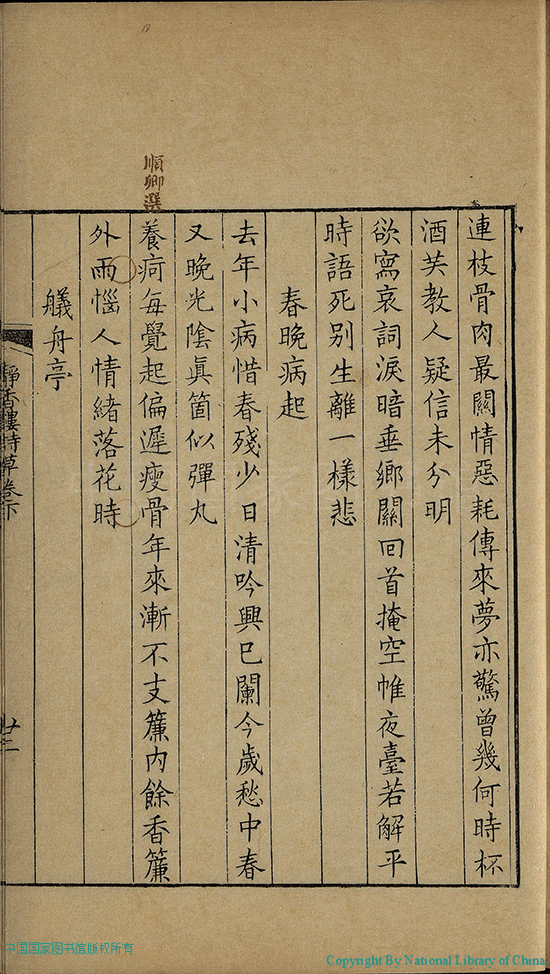 順卿選
連枝骨肉最關情惡耗傳來夢亦驚曾幾何時杯
酒芖教人疑信未分明
欲寫哀詞淚暗垂鄉關回首掩空帷夜臺若解平
時語死别生離一樣悲
春晚病起
去年小病惜春殘少日清吟興已闌今歲愁中春
又晚光陰眞箇似彈丸
養疴每覺起偏遲瘦骨年來漸不支簾内餘香簾
外雨惱人情緒落花時
艤舟亭
靜香樓詩草卷下
廿二
中国国家图书馆版权所有
Copyright By National Library of China